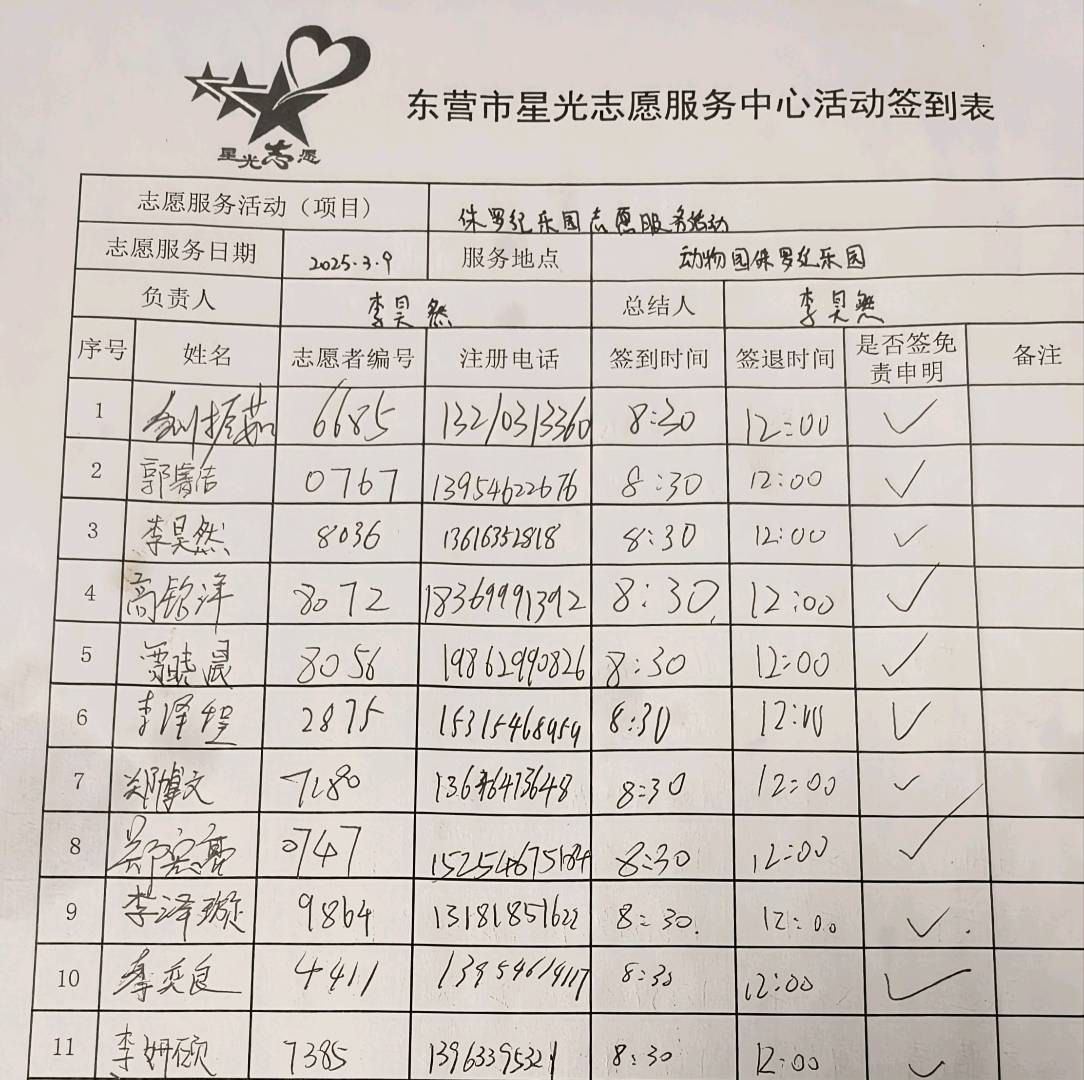 星光志愿
东营市星光志愿服务中心活动签到表
志愿服务活动（项目） 侏罗纪乐园志愿服务活动
志愿服务日期 2025.3.9 服务地点 动物园侏罗纪乐园
负责人 李昊然 总结人 李昊然
序号 姓名 志愿者编号 注册电话 签到时间 签退时间 是否签免责申明 备注
1 6685 13210313360 8:30 12:00 ✓
2 0767 13954622676 8:30 12:00 ✓
3 李昊然 8036 13616352818 8:30 12:00 ✓
4 高铭洋 8072 18369991392 8:30 12:00 ✓
5 贾晓晨 8056 19862990826 8:30 12:00 ✓
6 李泽煜 2875 15315468959 8:30 12:00 ✓
7 郑博文 7280 8:30 12:00 ✓
8 0747 8:30 12:00 ✓
9 李泽璇 9864 13181851622 8:30 12:00 ✓
10 李奕良 4411 8:30 12:00 ✓
11 李妍硕 7385 13963395321 8:30 12:00 ✓